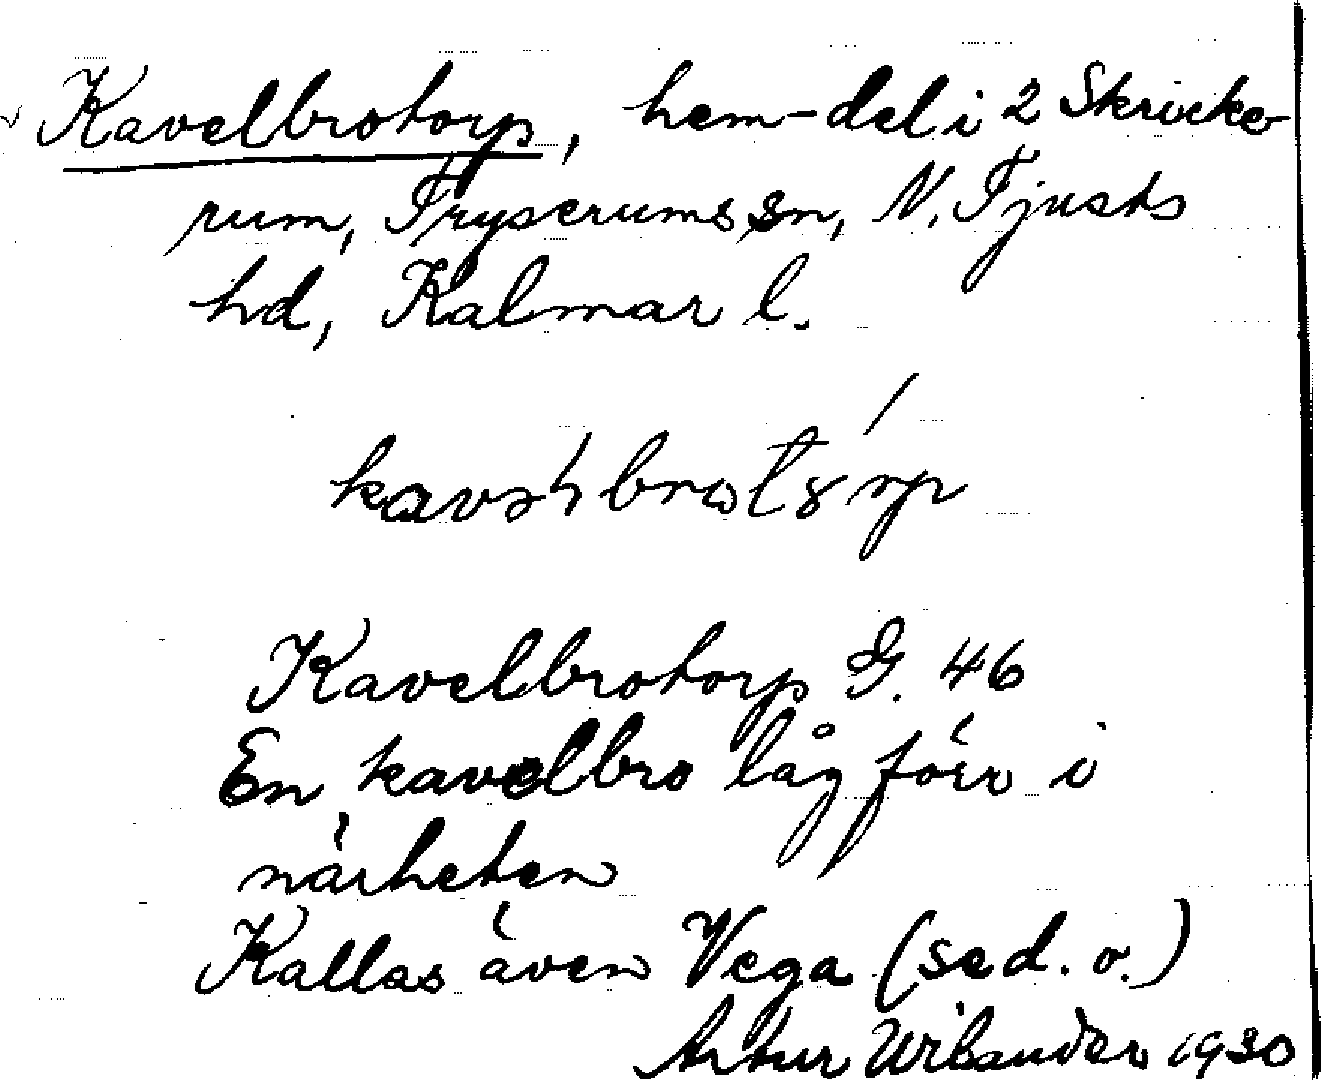 Kavelbrotorp, hem-del i 2 Skricke-
rum, Tryserums sn, N. Tjusts
hd, Kalmar l.
Kavelbrotorp G. 46
En kavelbro låg förr i
närheten
Kallas även Vega (se d. o.)
Artur Wilander 1930